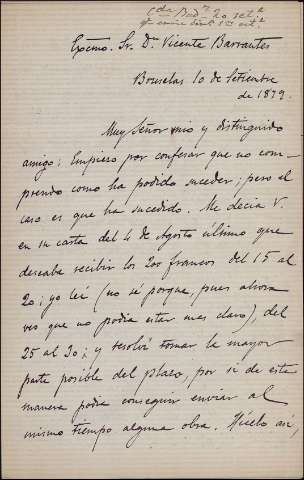 Cda Badz 20 set.e
Excmo. Sr. Dn. Vicente Barrantes
Bruselas 10 de Setiembre
de 1879.
Muy Señor mio y distinguido
amigo: Empiezo por confesar que no com-
prendo como ha podido suceder; pero el
caso es que ha sucedido. Me decia V.
en su carta del 4 de Agosto último que
deseaba recibir los 200 francos del 15 al
20; yo lei (no sé porque, pues ahora
veo que no podia estar mas claro), del
25 al 30; y resolví tomar la mayor
parte posible del plazo, por si de esta
manera podia conseguir enviar al
mismo tiempo alguna obra. Hícelo asi,